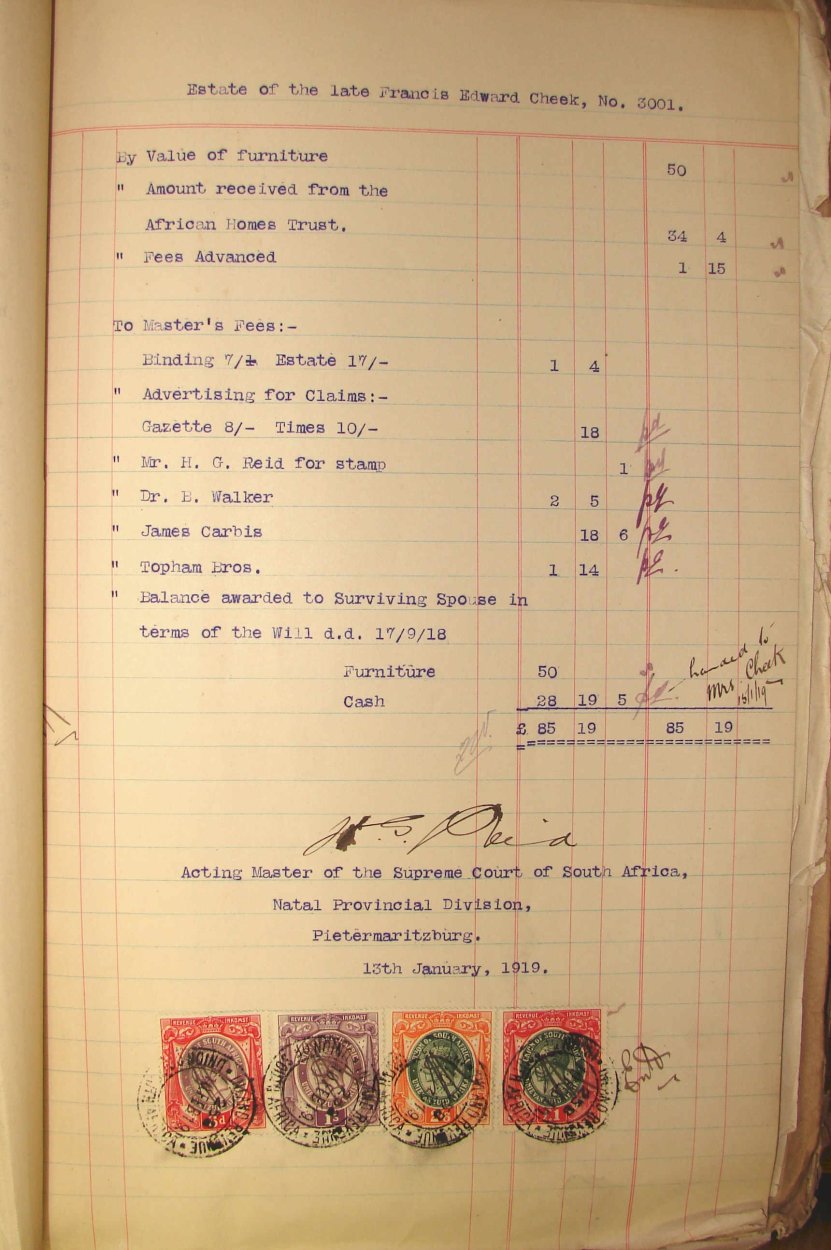 Estate of the late Francis Edward Cheek, No. 3001.
By Value of furniture 50
" Amount received from the
African Homes Trust. 34 4
" Fees Advanced 1 15
To Master's Fees:-
Binding 7/- Estate 17/- 1 4
" Advertising for Claims:-
Gazette 8/- Times 10/- 18 pd
" Mr. H. G. Reid for stamp 1 pd
" Dr. B. Walker 2 5 pd
" James Carbis 18 6 pd
" Topham Bros. 1 14 pd.
" Balance awarded to Surviving Spouse in
terms of the Will d.d. 17/9/18
Furniture 50
Cash 28 19 5
handed to
Mrs. Cheek
15/1/19
£ 85 19 85 19
H. G. Reid
Acting Master of the Supreme Court of South Africa,
Natal Provincial Division,
Pietermaritzburg.
13th January, 1919.
REVENUE INKOMST REVENUE INKOMST REVENUE INKOMST REVENUE INKOMST
3d 1s £1